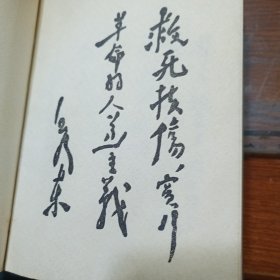 救死扶伤，实行
革命的人道主義
毛泽东